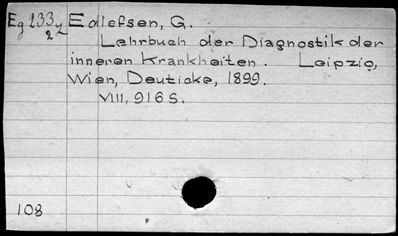 Eg 233y Edlefsen, G.
2
Lehrbuch der Diagnostik der
inneren Krankheiten. Leipzig,
Wien, Deuticke, 1899.
VIII, 916 S.
108